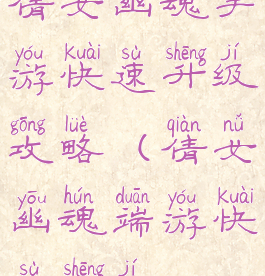 倩女幽魂手
yóu Kuài sù shēng jí
游快速升级
gōng lüè qiàn nǚ
攻略(倩女
yōu hún duān yóu Kuài
幽魂端游快
sù shēng jí